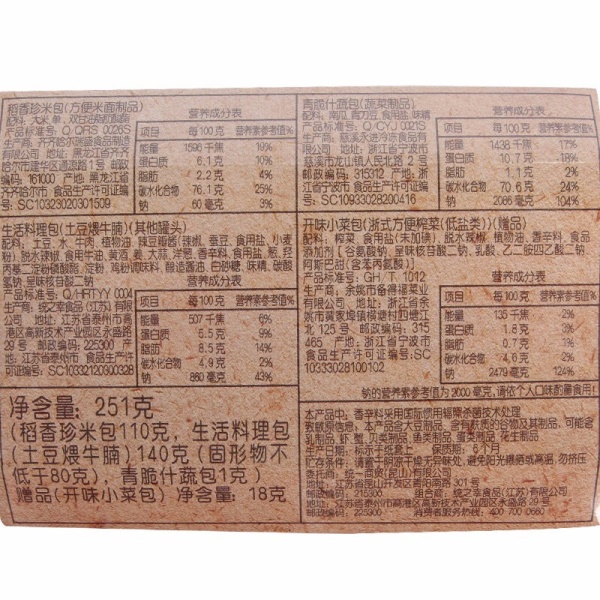 稻香珍米包(方便米面制品)
配料: 大米,单,双甘油脂肪酸酯
产品标准号: Q/QRS 0026S
有限公司 地址: 黑龙江省齐齐
编码: 161000 产地: 黑龙江省
齐齐哈尔市 食品生产许可证编
号: SC10323020301509
营养成分表
项目 每100克 营养素参考值%
能量 1596千焦 19%
蛋白质 6.1克 10%
脂肪 2.2克 4%
碳水化合物 76.1克 25%
钠 60毫克 3%
青脆什蔬包(蔬菜制品)
配料: 南瓜,青刀豆,食用盐,味精
产品标准号: Q/CYJ 0021S
公司 地址: 浙江省宁波市
慈溪市龙山镇人民北路2号
邮政编码: 315312 产地: 浙
江省宁波市 食品生产许可证编
号: SC10933028200416
营养成分表
项目 每100克 营养素参考值%
能量 1438千焦 17%
蛋白质 10.7克 18%
脂肪 1.1克 2%
碳水化合物 70.6克 24%
钠 2086毫克 104%
生活料理包(土豆煨牛腩)(其他罐头)
配料: 土豆,水,牛肉,植物油,辣豆瓣酱(辣椒,蚕豆,食用盐,小麦
粉),脱水辣椒,食用牛油,黄酒,姜,大蒜,洋葱,香辛料,食用盐,葱,羟
丙基二淀粉磷酸酯,淀粉,鸡粉调味料,酿造酱油,白砂糖,味精,碳酸
氢钠,呈味核苷酸二钠
产品标准号: Q/HRTYY 0004
生产商: 统之幸食品(江苏)有限
公司 地址: 江苏省泰州市高
港区高新技术产业园区永盛路
29号 邮政编码: 225300 产
地: 江苏省泰州市 食品生产许
可证编号: SC10332120900328
营养成分表
项目 每100克 营养素参考值%
能量 507千焦 6%
蛋白质 5.5克 9%
脂肪 8.5克 14%
碳水化合物 4.9克 2%
钠 860毫克 43%
开味小菜包(浙式方便榨菜(低盐类))(赠品)
配料: 榨菜,食用盐(未加碘),脱水辣椒,植物油,香辛料,食品
添加剂(谷氨酸钠,呈味核苷酸二钠,乳酸,乙二胺四乙酸二钠,
阿斯巴甜(含苯丙氨酸))
产品标准号: GH/T 1012
生产商: 余姚市备得福菜业
有限公司 地址: 浙江省余
姚市黄家埠镇横塘村四塘江
北125号 邮政编码: 315
465 产地: 浙江省宁波市
食品生产许可证编号: SC
10333028100102
营养成分表
项目 每100克 营养素参考值%
能量 135千焦 2%
蛋白质 1.8克 3%
脂肪 0.7克 1%
碳水化合物 4.6克 2%
钠 2479毫克 124%
钠的营养素参考值为2000毫克,请依个人口味酌量食用!
净含量: 251克
(稻香珍米包110克, 生活料理包
(土豆煨牛腩)140克(固形物不
低于80克), 青脆什蔬包1克)
赠品(开味小菜包) 净含量: 18克
本产品中: 香辛料采用国际惯用辐照杀菌技术处理
致敏原信息: 本产品含大豆制品, 含有麸质的谷物及其制品, 可能含
乳制品, 虾, 蟹, 贝类制品, 鱼类制品, 蛋类制品, 花生制品
生产日期: 标示于纸套上 保质期: 6个月
贮存条件: 请置于阴凉干燥无异味处, 避免阳光曝晒或高温, 勿挤压
委托商: 统一商贸(昆山)有限公司
地址: 江苏省昆山开发区青阳南路301号
邮政编码: 215300 组合商: 统之幸食品(江苏)有限公司
地址: 江苏省泰州市高港区高新技术产业园区永盛路29号
邮政编码: 225300 消费者服务热线: 400 700 0660